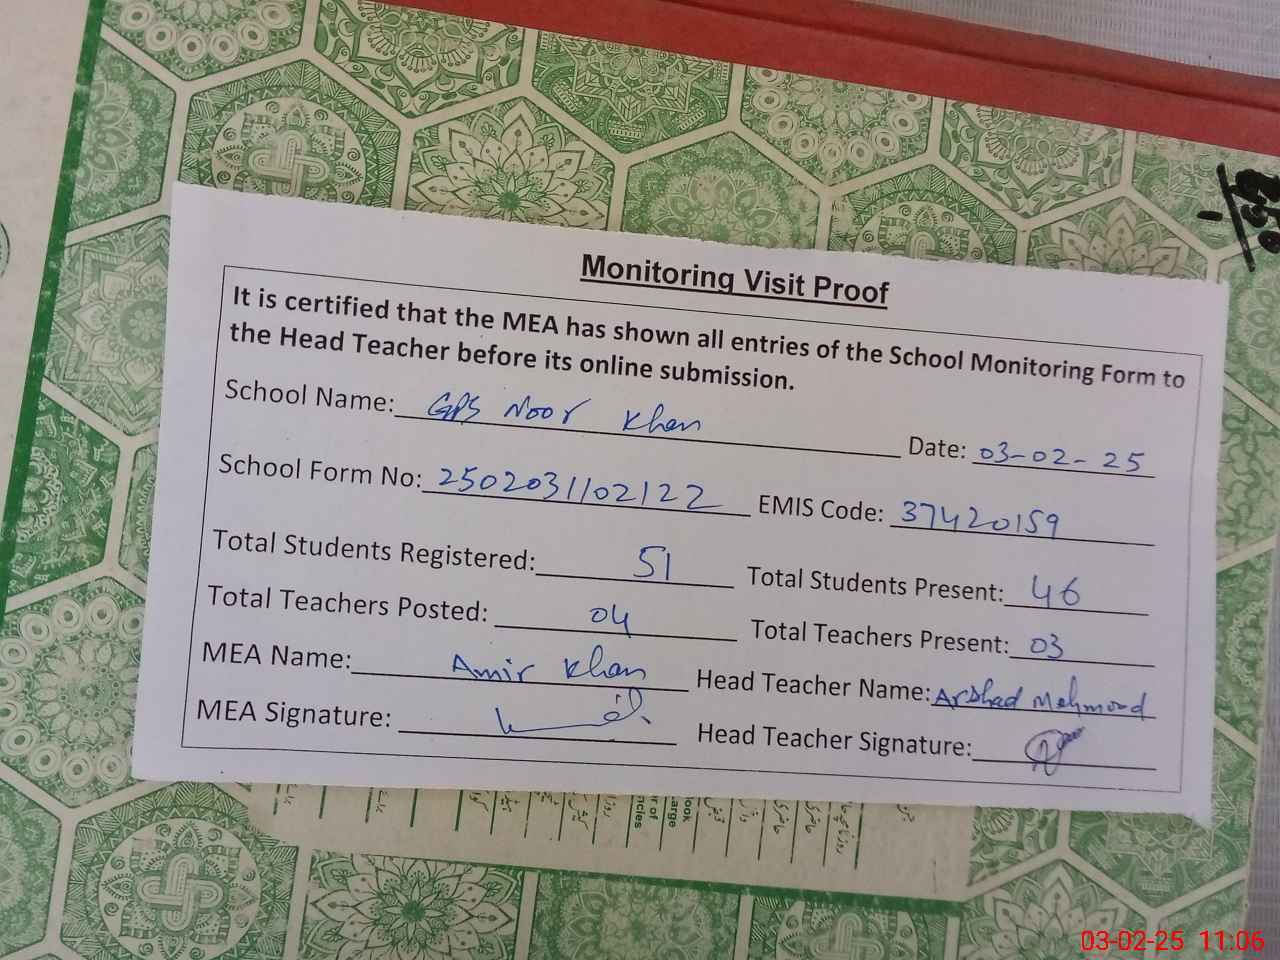 Monitoring Visit Proof
It is certified that the MEA has shown all entries of the School Monitoring Form to
the Head Teacher before its online submission.
School Name: GPS Noor Khan Date: 03-02-25
School Form No: 2502031102122 EMIS Code: 37420159
Total Students Registered: 51 Total Students Present: 46
Total Teachers Posted: 04 Total Teachers Present: 03
MEA Name: Amir Khan Head Teacher Name: Arshad Mehmood
MEA Signature: Head Teacher Signature:
03-02-25 11:06